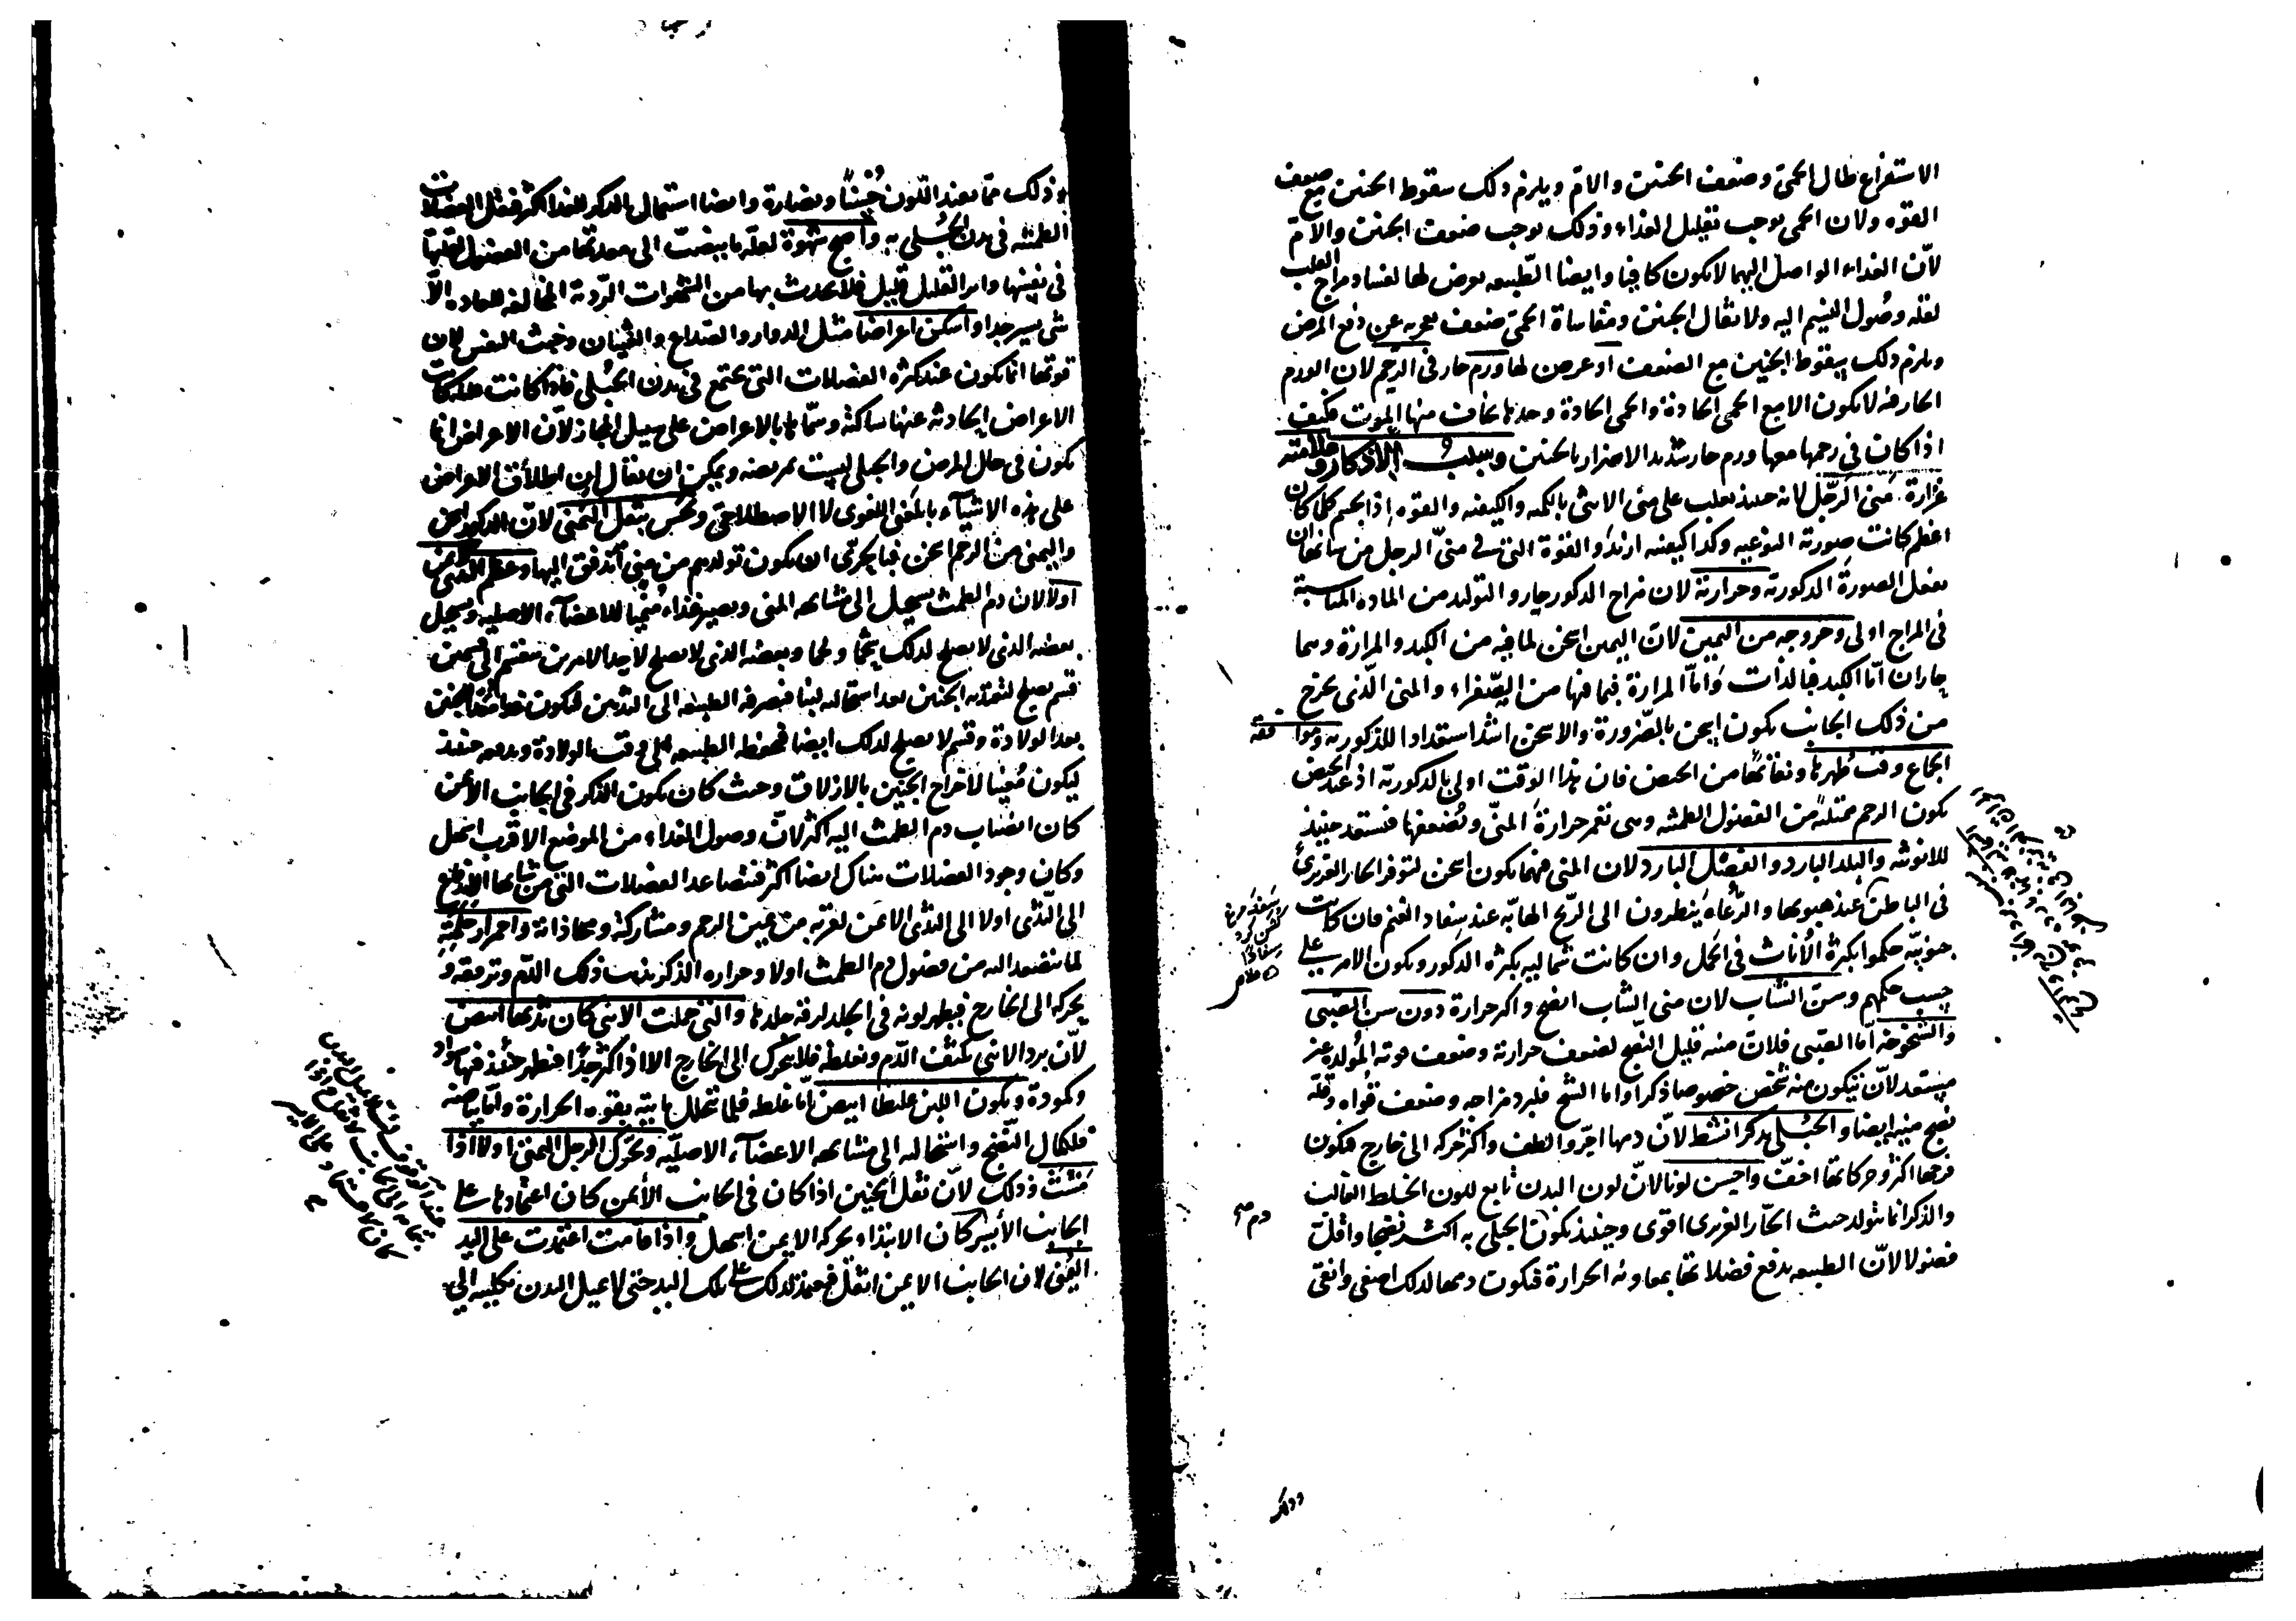 الاستفراغ طال الحمى وضعف الجنين والام ويلزم ذلك سقوط الجنين مع ضعف
القوه ولان الحمى توجب تقليل الغذاء وذلك يوجب ضعف الجنين والام
لان الغذاء الواصل اليهما لا يكون كافيا وايضا الطبيعه يعرض لها لفساد مزاج القلب
لقله وصول النسيم اليه ولاثقال الجنين ومقاساة الحمى ضعف عن دفع المرض
ويلزم ذلك سقوط الجنين مع الضعف او عرض لها ورم حار فى الرحم لان الورم
الحار فيه لا يكون الا مع الحمى الحادة والحمى الحادة وحدها يخاف منها الموت فكيف
اذا كان فى رحمها معها ورم حار شديد الاضرار بالجنين وسبب الاذكار وعلامته
غزارة منى الرجل لانه حينئذ يغلب على منى الانثى بالكميه والكيفيه والقوه اذ الجسم كلما كان
اعظم كانت صورته النوعيه وكذا كيفيته ازيد والقوة التى فى منى الرجل من شانها ان
تفعل الصورة الذكوريه وحرارته لان مزاج الذكور حار والتولد من الماده المناسبة
فى المزاج اولى وخروجه من اليمين لان اليمين اسخن لما فيه من الكبد والمرارة وهما
حاران اما الكبد فبالذات واما المرارة فبما فيها من الصفراء والمنى الذى يخرج
من ذلك الجانب يكون اسخن بالضرورة والاسخن اشد استعدادا للذكوريه وموافقه
الجماع وقت طهرها ونقائها من الحيض فان هذا الوقت اولى بالذكوريه اذ عند الحيض
يكون الرحم ممتلئه من الفضول الطمثيه وهى تغمر حرارة المنى وتضعفها فتستعد حينئذ
للانوثه والبلد البارد والفصل البارد لان المنى فيهما يكون اسخن لتوفر الحار الغريزى
فى الباطن عند هبوبها والرعاه ينظرون الى الريح الهابه عند سفاد الغنم فان كانت
جنوبيه حكموا بكثرة الاناث فى الحمل وان كانت شماليه بكثره الذكور ويكون الامر على
حسب حكمهم وسن الشاب لان منى الشاب انضج واكثر حرارة دون سن الصبى
والشيخوخه اما الصبى فلان منيه قليل النضج لضعف حرارته وضعف قوته المولده غير
مستعد لان يتكون منه شخص خصوصا ذكرا واما الشيخ فلبرد مزاجه وضعف قواه وقله
نضج منيه ايضا والحبلى بذكر انشط لان دمها احر والطف واكثر حركه الى خارج فيكون
فرحها اكثر وحركاتها اخف واحسن لونا لان لون البدن تابع للون الخلط الغالب
والذكر انما يتولد حيث الحار الغريزى اقوى وحينئذ يكون الحبلى به اكثر نضجا واقل
فضولا لان الطبيعه تدفع فضلاتها بمعاونه الحرارة فتكون دمها لذلك اصفى وانقى
وذلك مما يفيد اللون حسنا ونضارة وايضا استعمال الذكر للغذا اكثر فتقل الفضلات
الطمثيه فى بدن الحبلى به واصح شهوة لقله ما ينصب الى معدتها من الفضول لقلتها
فى نفسها واثر القليل قليل فلا يحدث بها من الشهوات الرديه المخالفه للعاده الا
شى يسير جدا واسكن اعراضا مثل الدوار والصداع والغثيان وخبث النفس لان
قوتها انما يكون عند كثره الفضلات التى تجتمع فى بدن الحبلى فاذا كانت قليله كانت
الاعراض الحادثه عنها ساكنة وسماها بالاعراض على سبيل المجاز لان الاعراض انما
تكون فى حال المرض والحبلى ليست بمريضه ويمكن ان يقال ان اطلاق الاعراض
على هذه الاشياء بالمعنى اللغوى لا الاصطلاحى وتحس بثقل اليمنى لان الذكور اسخن
واليمنى من الرحم اسخن فبالحرى ان يكون تولدهم من منى اندفق اليها وعظم الثدى الايمن
اولا لان دم الطمث يستحيل الى مشابهه المنى ويصير غذاء منميا للاعضاء الاصليه ويستحيل
بعضه الذى لا يصلح لذلك شحما ولحما وبعضه الذى لا يصلح لاحد الامرين ينقسم الى قسمين
قسم يصلح لتغذيه الجنين بعد استحالته لبنا فتصرفه الطبيعه الى الثديين فيكون غذاء للجنين
بعد الولادة وقسم لا يصلح لذلك ايضا فتحفظه الطبيعه الى وقت الولادة وتدفعه حينئذ
ليكون معينا لاخراج الجنين بالازلاق وحيث كان يكون الذكر فى الجانب الايمن
كان انصباب دم الطمث اليه اكثر لان وصول الغذاء من الموضع الاقرب اسهل
وكان وجود الفضلات هناك ايضا اكثر فتتصاعد الفضلات التى من شانها ان تدفع
الى الثدى اولا الى الثدى الايمن لقربه من يمين الرحم ومشاركته ومحاذاته واحمرار حلمته
لما يتصعد اليه من فضول دم الطمث اولا وحراره الذكر يذيب ذلك الدم وترققه و
يحركه الى الخارج فيظهر لونه فى الجلد لرقه جلدها والتى حملت الانثى كان ثديها ابيض
لان برد الانثى يكثف الدم ويغلظه فلا يتحرك الى الخارج الا اذا كثر جدا فيظهر حينئذ فيها سواد
وكمودة ويكون اللبن غليظا ابيض اما غلظه فلما تتحلل مائيته بقوه الحرارة واما بياضه
فلكمال النضج واستحالته الى مشابهه الاعضاء الاصليه وتحرك الرجل اليمنى اولا اذا
مشت وذلك لان ثقل الجنين اذا كان فى الجانب الايمن كان اعتمادها على
الجانب الايسر كان الابتداء بحركه الايمن اسهل واذا قامت اعتمدت على اليد
اليمنى لان الجانب الايمن اثقل فتعتمد لذلك على تلك اليد حتى لا يميل البدن بكليته الى